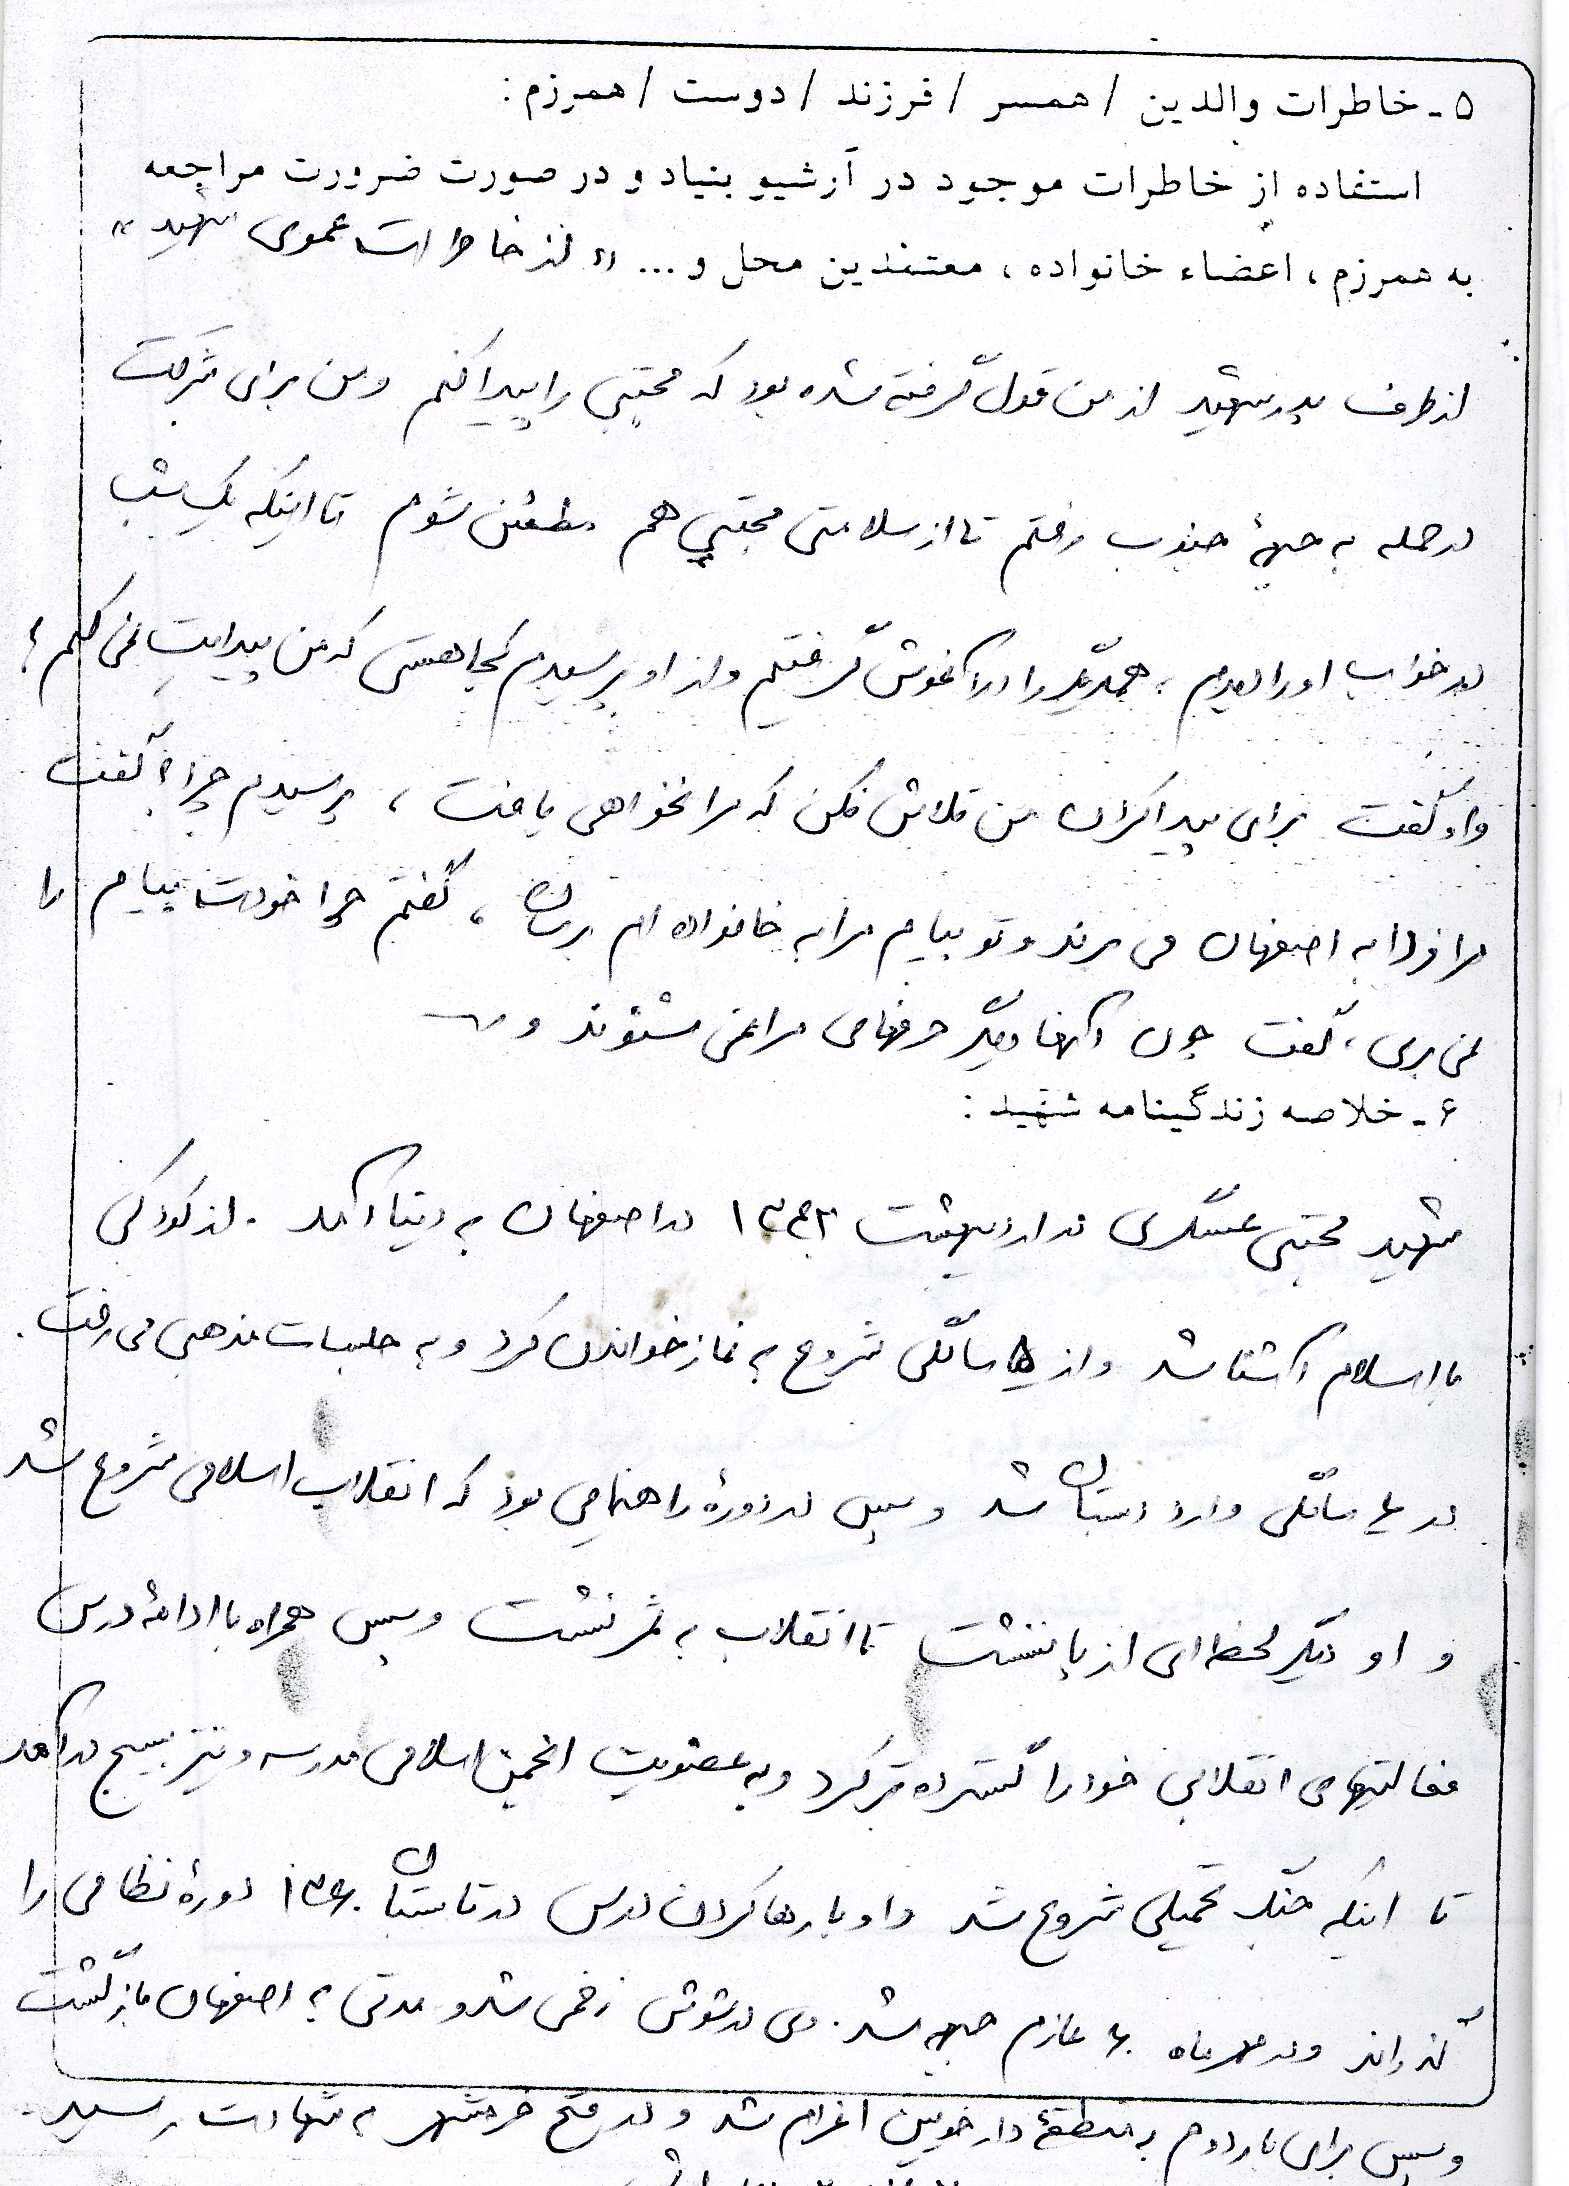 ۵- خاطرات والدین / همسر / فرزند / دوست / همرزم :
استفاده از خاطرات موجود در آرشیو بنیاد و در صورت ضرورت مراجعه
به همرزم ، اعضاء خانواده ، معتمدین محل و ... « از خاطرات عموی شهید »
از طرف پدر شهید از من قول گرفته شده بود که مجتبی را پیدا کنم و من برای شرکت
در حمله به جبههٔ جنوب رفتم تا از سلامتی مجتبی هم مطمئن شوم تا اینکه یک شب
در خواب او را دیدم ، همدیگر را در آغوش گرفتیم و از او پرسیدم کجا هستی که من پیدایت نمی کنم ؟
و او گفت برای پیدا کردن من تلاش نکن که مرا نخواهی یافت ، پرسیدم چرا ؟ گفت
مرا فردا به اصفهان می برند و تو پیام مرا به خانواده ام برسان ، گفتم چرا خودت پیام را
نمی بری ، گفت چون آنها دیگر حرفهای مرا نمی شنوند و ...
۶- خلاصه زندگینامه شهید :
شهید مجتبی عسگری در اردیبهشت ۱۳۴۳ در اصفهان به دنیا آمد . از کودکی
با اسلام آشنا شد و از ۵ سالگی شروع به نماز خواندن کرد و به جلسات مذهبی می رفت .
در ۶ سالگی وارد دبستان شد و سپس در دورهٔ راهنمایی بود که انقلاب اسلامی شروع شد
و او دیگر لحظه ای از پا ننشست تا انقلاب به ثمر نشست و سپس همراه با ادامهٔ درس
فعالیتهای انقلابی خود را گسترده تر کرد و به عضویت انجمن اسلامی مدرسه و نیز بسیج درآمد
تا اینکه جنگ تحمیلی شروع شد و او با رها کردن درس در تابستان ۱۳۶۰ دورهٔ نظامی را
گذراند و در مهر ماه ۶۰ عازم جبهه شد . وی در شوش زخمی شد و مدتی به اصفهان بازگشت
و سپس برای بار دوم به منطقهٔ دارخوین اعزام شد و در فتح خرمشهر به شهادت رسید .